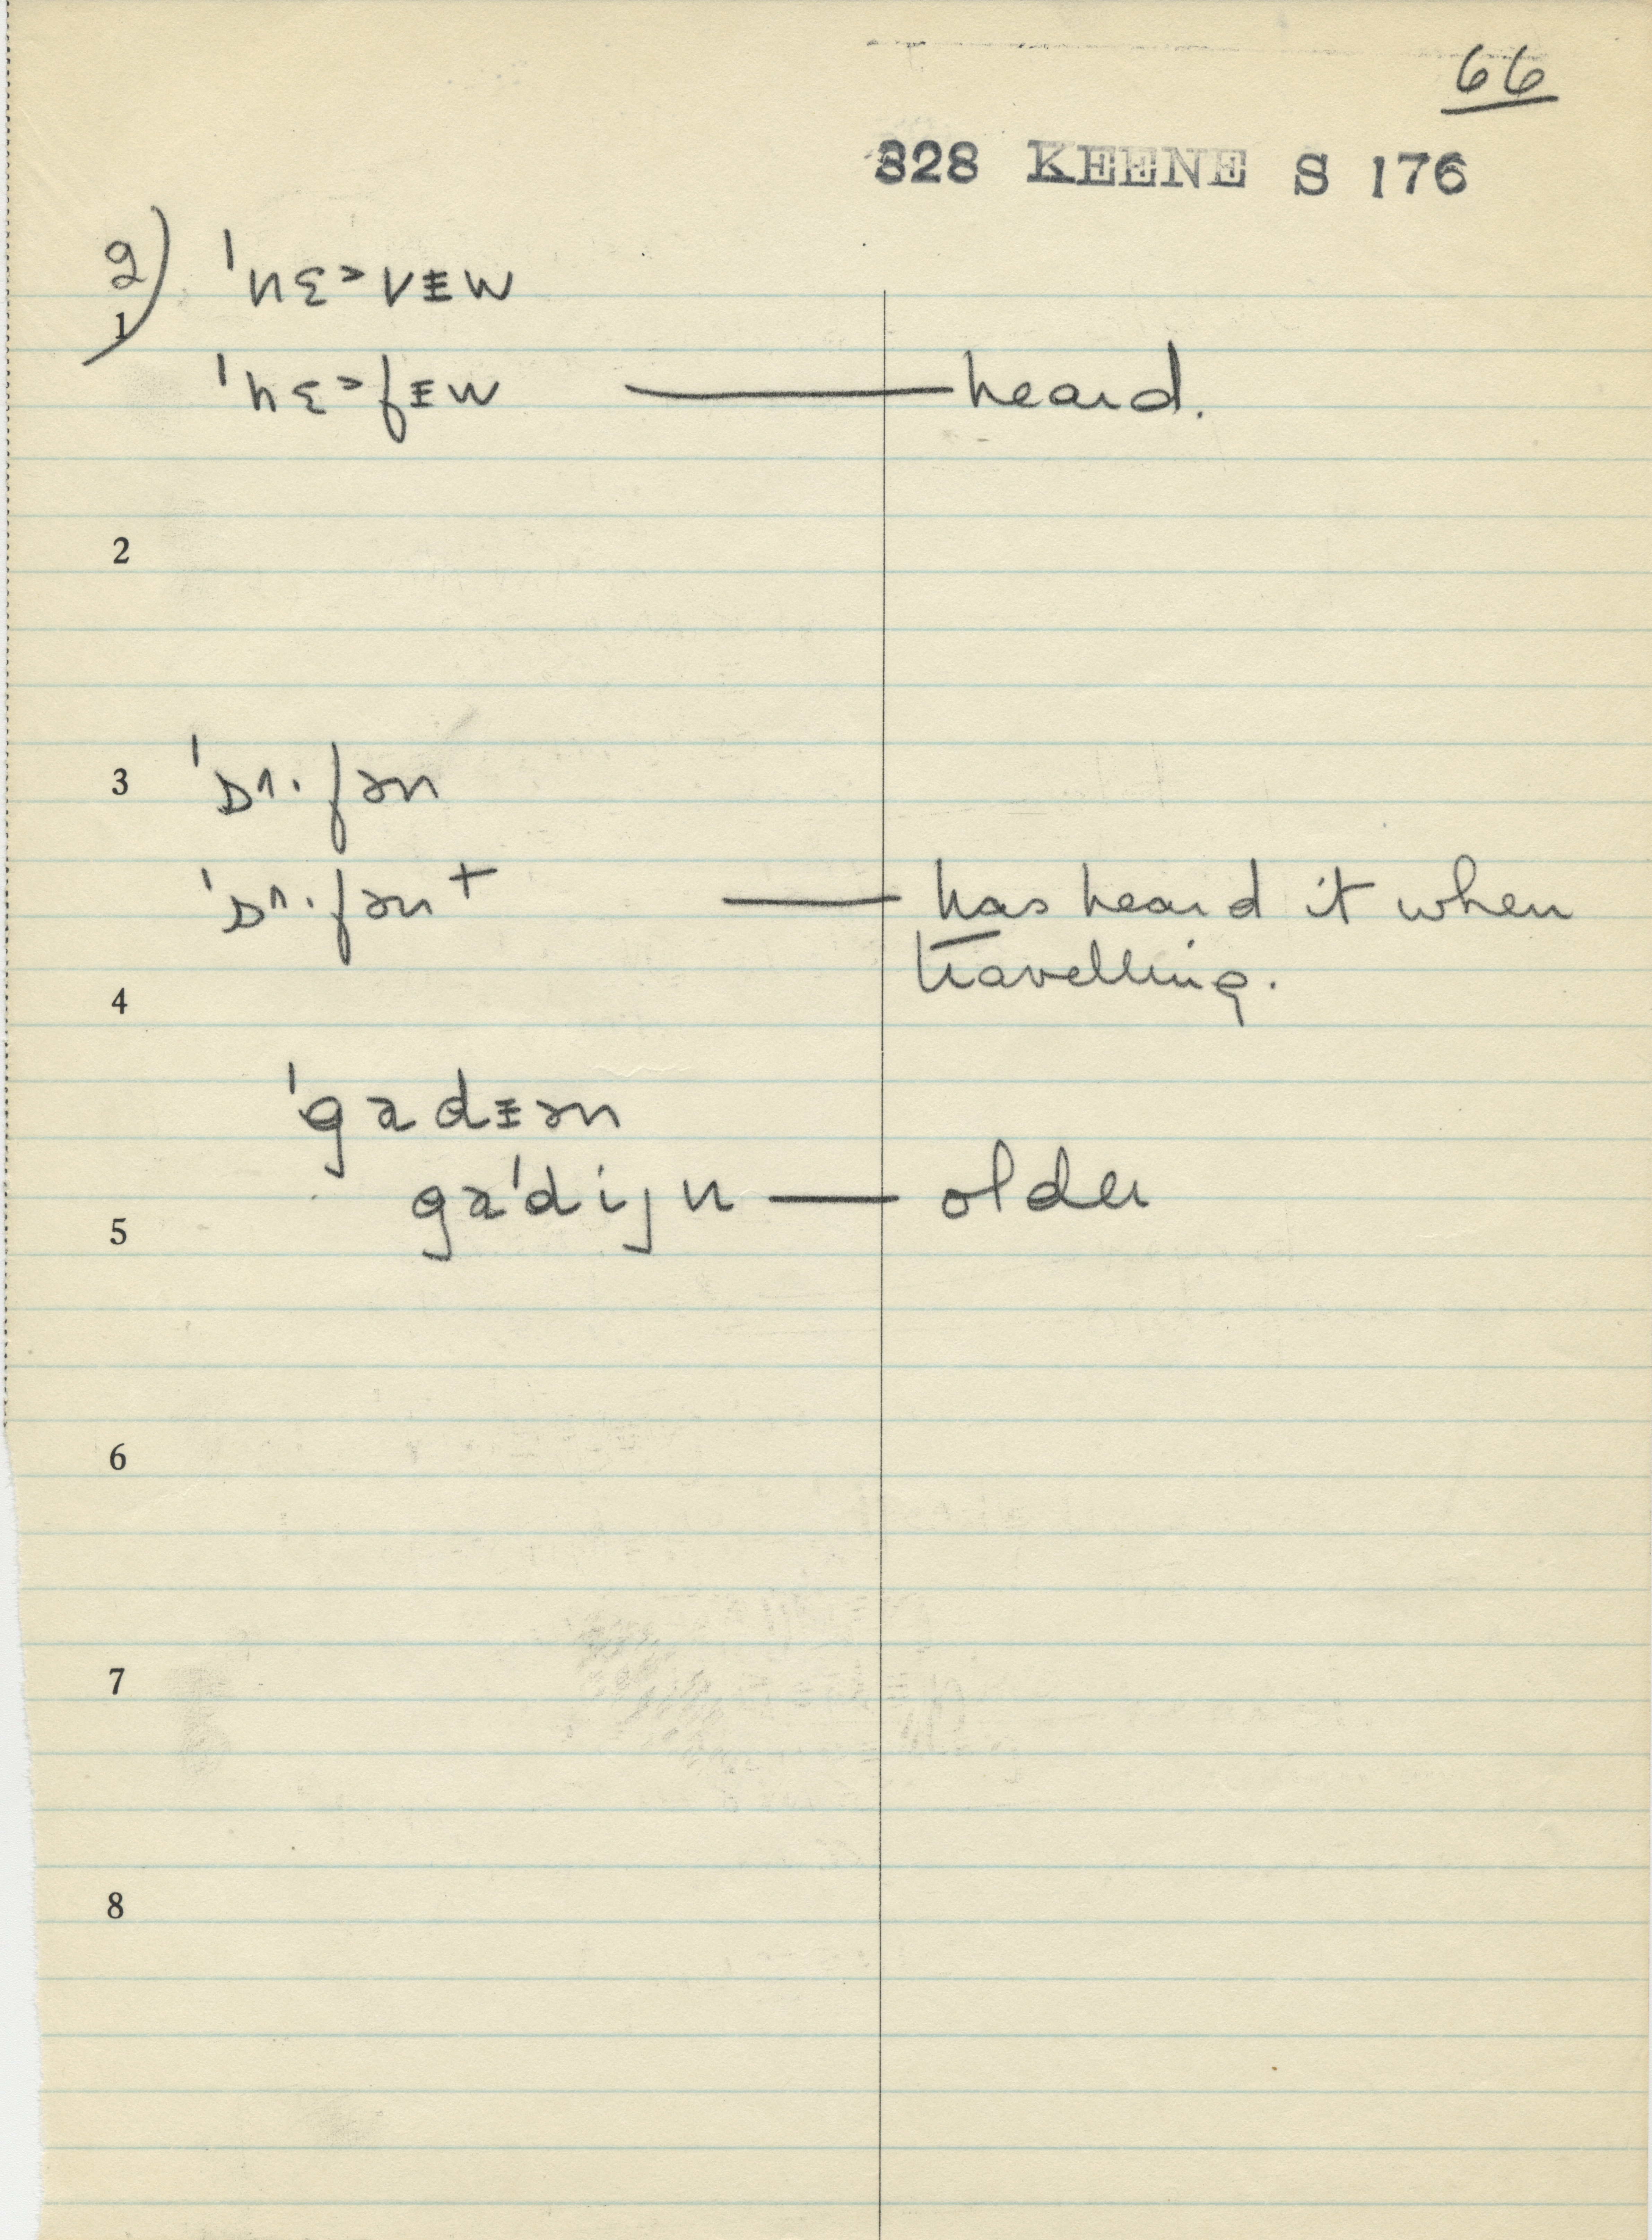 66
328 KEENE S 176
g)
1
ˈnɛ˃vɪ̵w
ˈhɛ˃fɪ̵w — heard.
2
3 ˈsʌ·fən
ˈsʌ·fən + — has heard it when
travelling.
4
ˈgadɪ̵ən
gaˈdijn — older
5
6
7
8